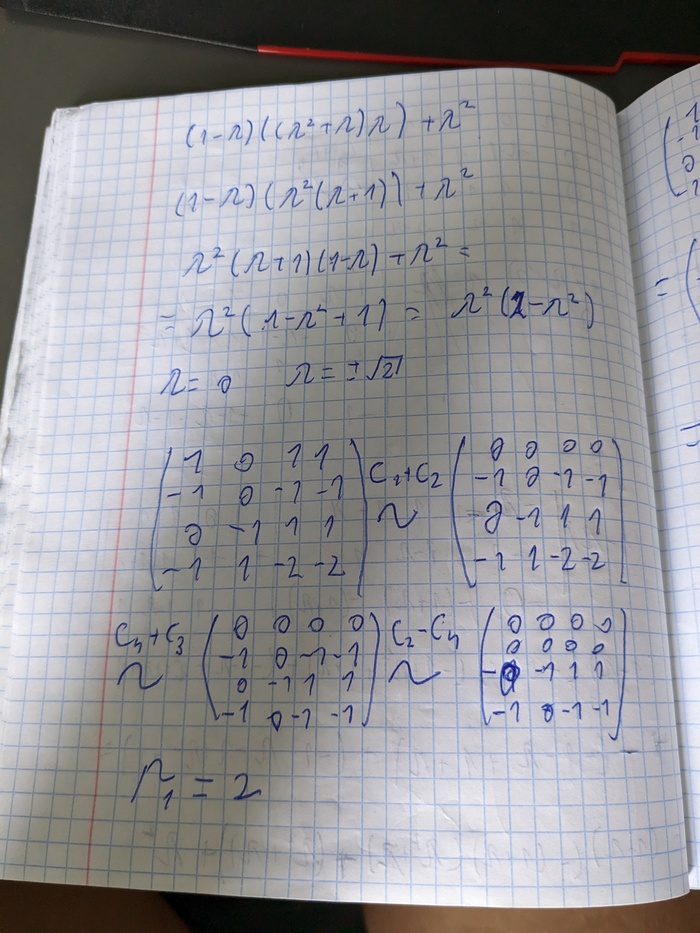 (1-λ)((λ²+λ)λ)+λ²
(1-λ)(λ²(λ+1))+λ²
λ²(λ+1)(1-λ)+λ² =
= λ²(1-λ²+1) = λ²(2-λ²)
λ= 0 λ= ±√2
1 0 1 1
-1 0 -1 -1
0 -1 1 1
-1 1 -2 -2
C₁+C₂
~
0 0 0 0
-1 0 -1 -1
0 -1 1 1
-1 1 -2 -2
C₄+C₃
~
0 0 0 0
-1 0 -1 -1
0 -1 1 1
-1 0 -1 -1
C₂-C₄
~
0 0 0 0
0 0 0 0
0 -1 1 1
-1 0 -1 -1
r₁ = 2